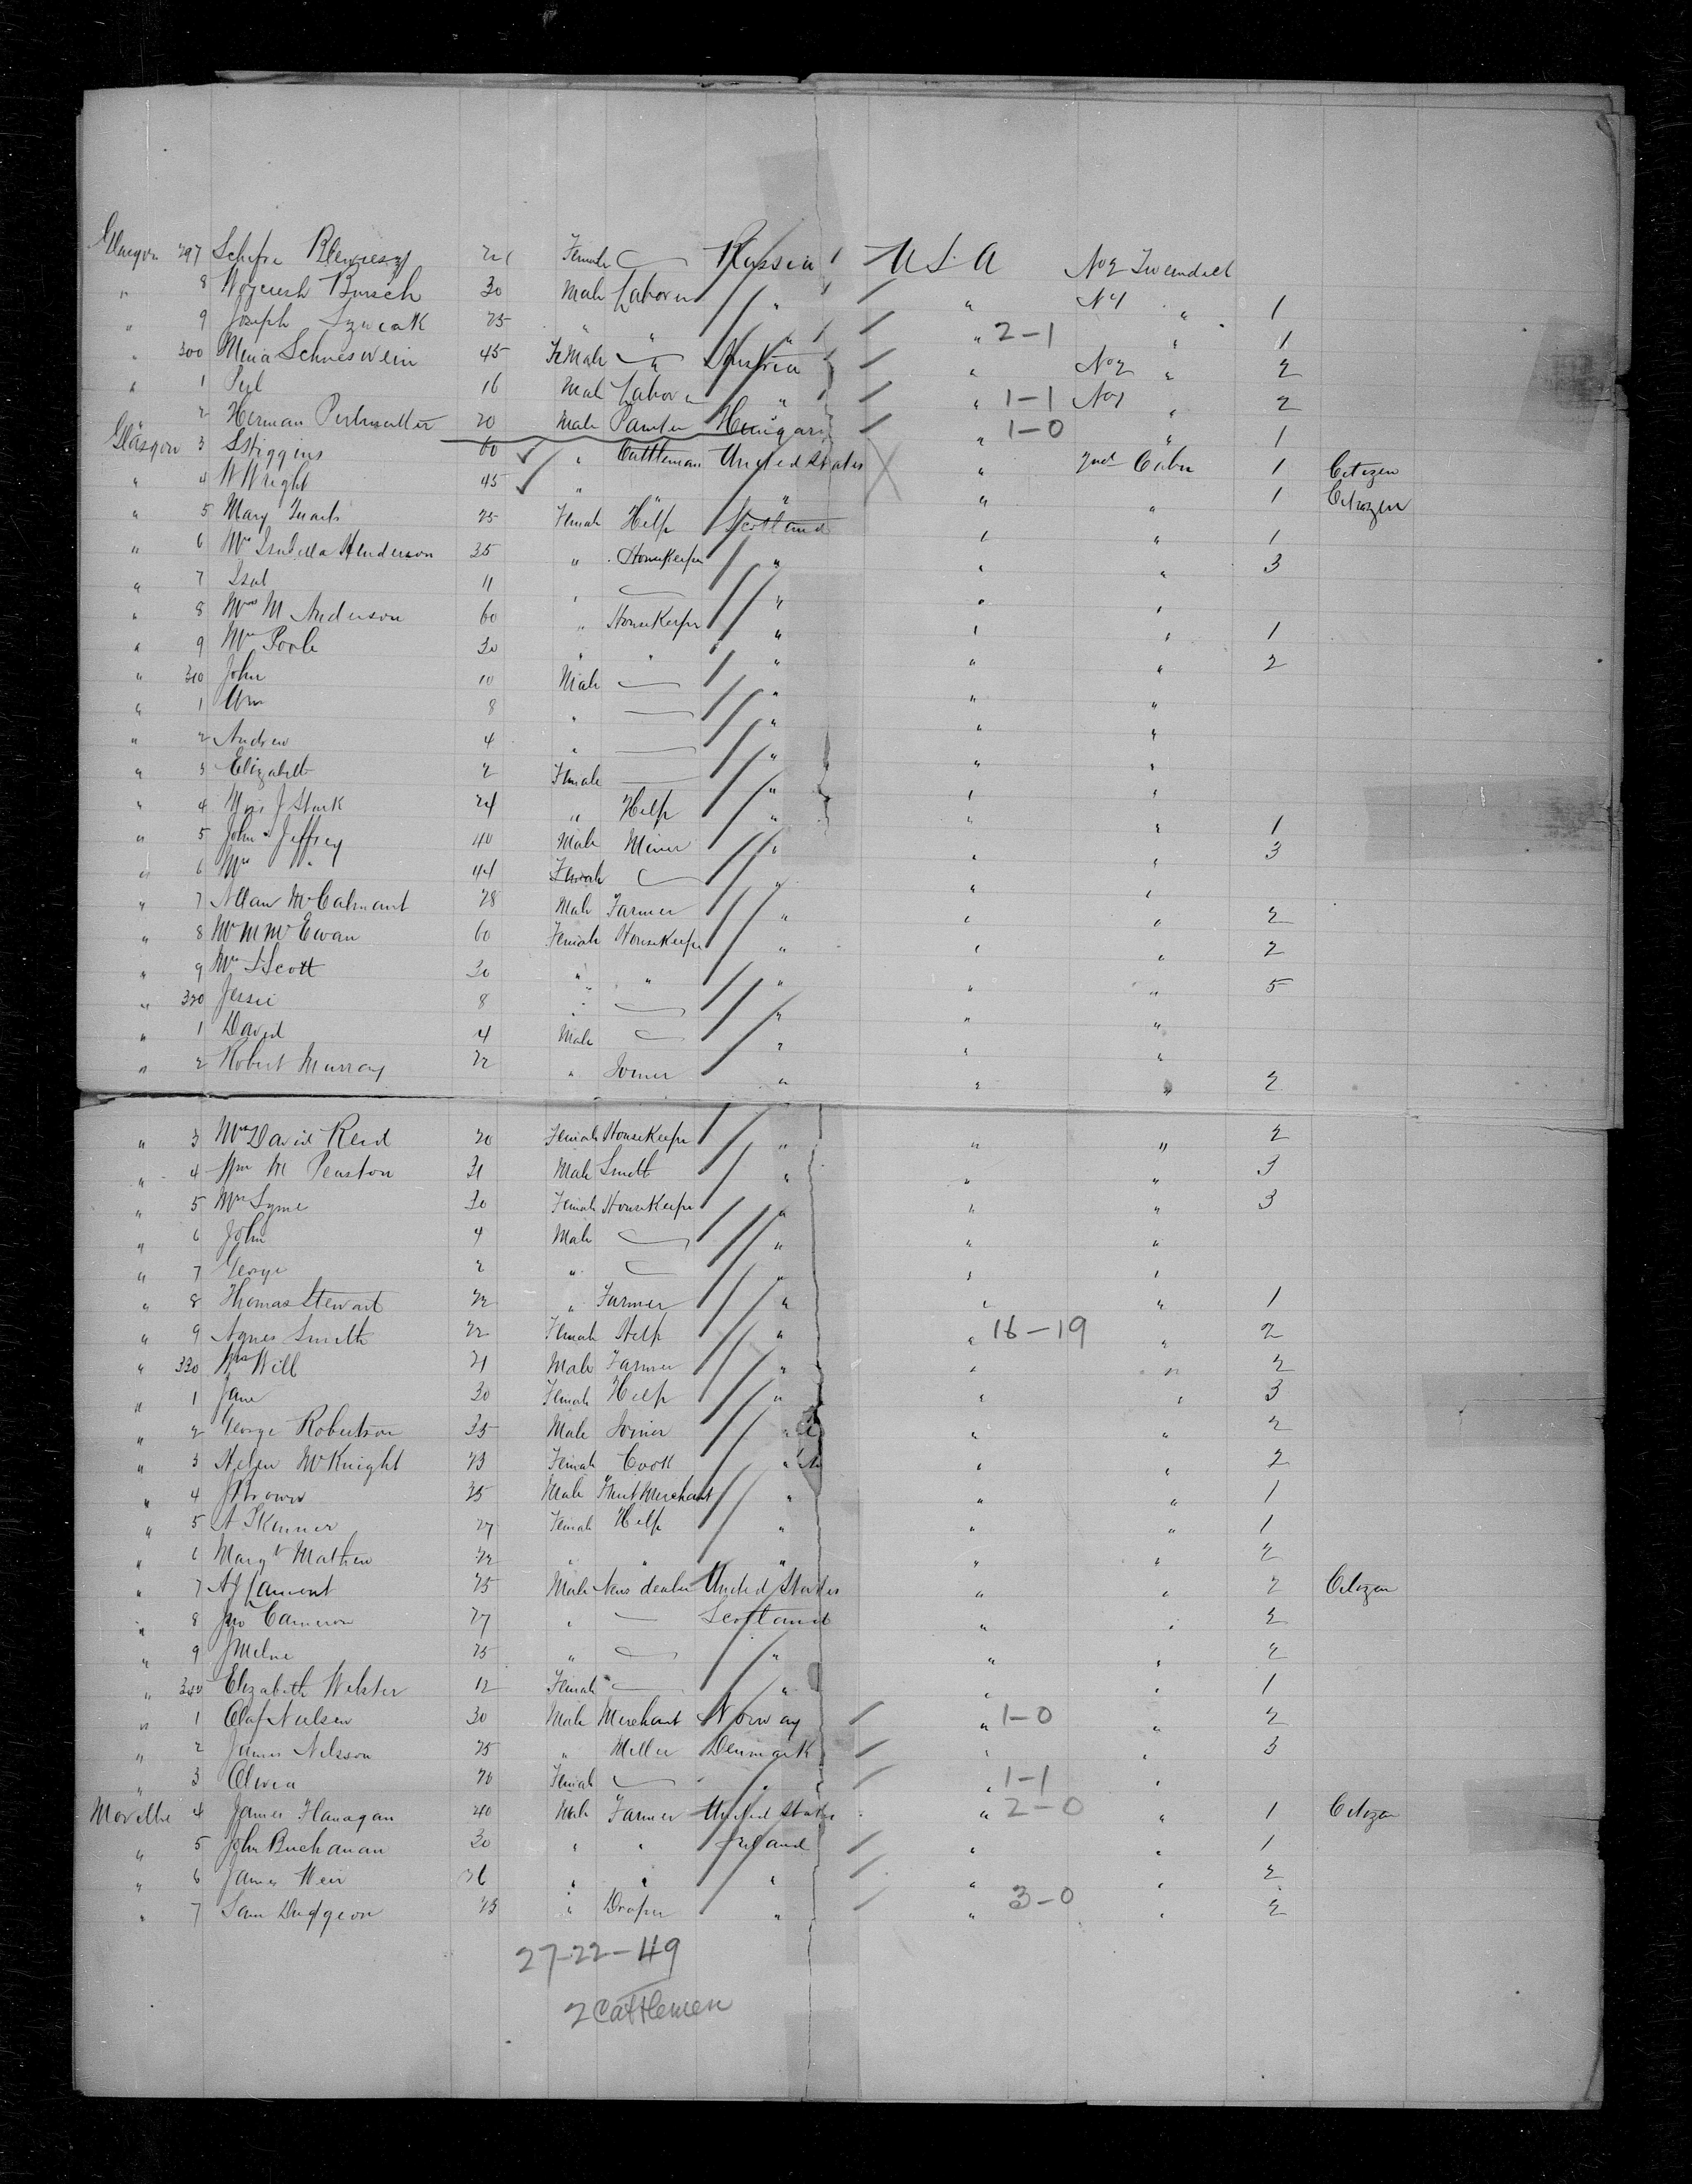 Glasgow 297 Female Russia U S A No 2 Tweendeck
" 8 30 Male Laborer " " No 1 " 1
" 9 Joseph 25 " " " " 2-1 " 1
" 300 45 Female " Austria " No 2 " 2
" 1 16 Male Labor " " 1-1 No 1 " 2
2 Herman Perlmutter 20 Male Painter Hungary " 1-0 " 1
Glasgow 3 S Higgins 60 " Cattleman United States " 2nd Cabin 1 Citizen
" 4 W Wright 45 " " " " " 1 Citizen
" 5 Mary 25 Female Help Scotland " " 1
" 6 Mrs Isabella Henderson 35 " Housekeeper " " " 3
" 7 Isab 11 " — " " "
" 8 Mrs M Anderson 60 " Housekeeper " " " 1
" 9 Mrs Poole 30 " " " " " 2
" 310 John 10 Male — " " "
" 1 Wm 8 " — " " "
" 2 Andrew 4 " — " " "
" 3 Elizabeth 2 Female — " " "
" 4 Miss J Stark 24 " Help " " " 1
" 5 John Jeffrey 40 Male Miner " " " 3
" 6 Mrs " 44 Female — " " "
" 7 Allan McCalmant 28 Male Farmer " " " 2
" 8 Mrs M McEwan 60 Female Housekeeper " " " 2
" 9 Mrs S Scott 30 " " " " " 5
" 320 Jessie 8 " — " " "
" 1 David 4 Male — " " "
" 2 Robert Murray 22 " Joiner " " " 2
" 3 Mrs David Reid 20 Female Housekeeper " " " 2
" 4 Wm M Penston 31 Male Smith " " " 3
" 5 Mrs Syme 30 Female Housekeeper " " " 3
" 6 John 4 Male — " " "
" 7 George 2 " — " " "
" 8 Thomas Stewart 22 " Farmer " " " 1
" 9 Agnes Smith 22 Female Help " " 16-19 " 2
" 330 Will 21 Male Farmer " " " 2
" 1 Jane 30 Female Help " " " 3
" 2 George Robertson 35 Male Joiner " " " 2
" 3 Helen McKnight 23 Female Cook " " " 2
" 4 J Brown 35 Male Fruit Merchant " " " 1
" 5 A Skinner 27 Female Help " " " 1
" 6 Margt Mathew 22 " " " " " 2
" 7 A J Lamont 25 Male News dealer United States " " 2 Citizen
" 8 Jno Cameron 27 " — Scotland " " 2
" 9 J Milne 25 " — " " " 2
" 340 Elizabeth Webster 12 Female — " " " 1
" 1 Olaf Nielsen 30 Male Merchant Norway " 1-0 " 2
" 2 James Nilsson 25 " Miller Denmark " " 3
" 3 Olivia 20 Female — " " 1-1 "
Moville 4 James Flanagan 40 Male Farmer United States " 2-0 " 1 Citizen
" 5 John Buchanan 30 " " Ireland " " 1
" 6 James Weir 26 " " " " " 2
" 7 Sam Dudgeon 23 " Draper " " 3-0 " 2
27-22-49
2 Cattlemen